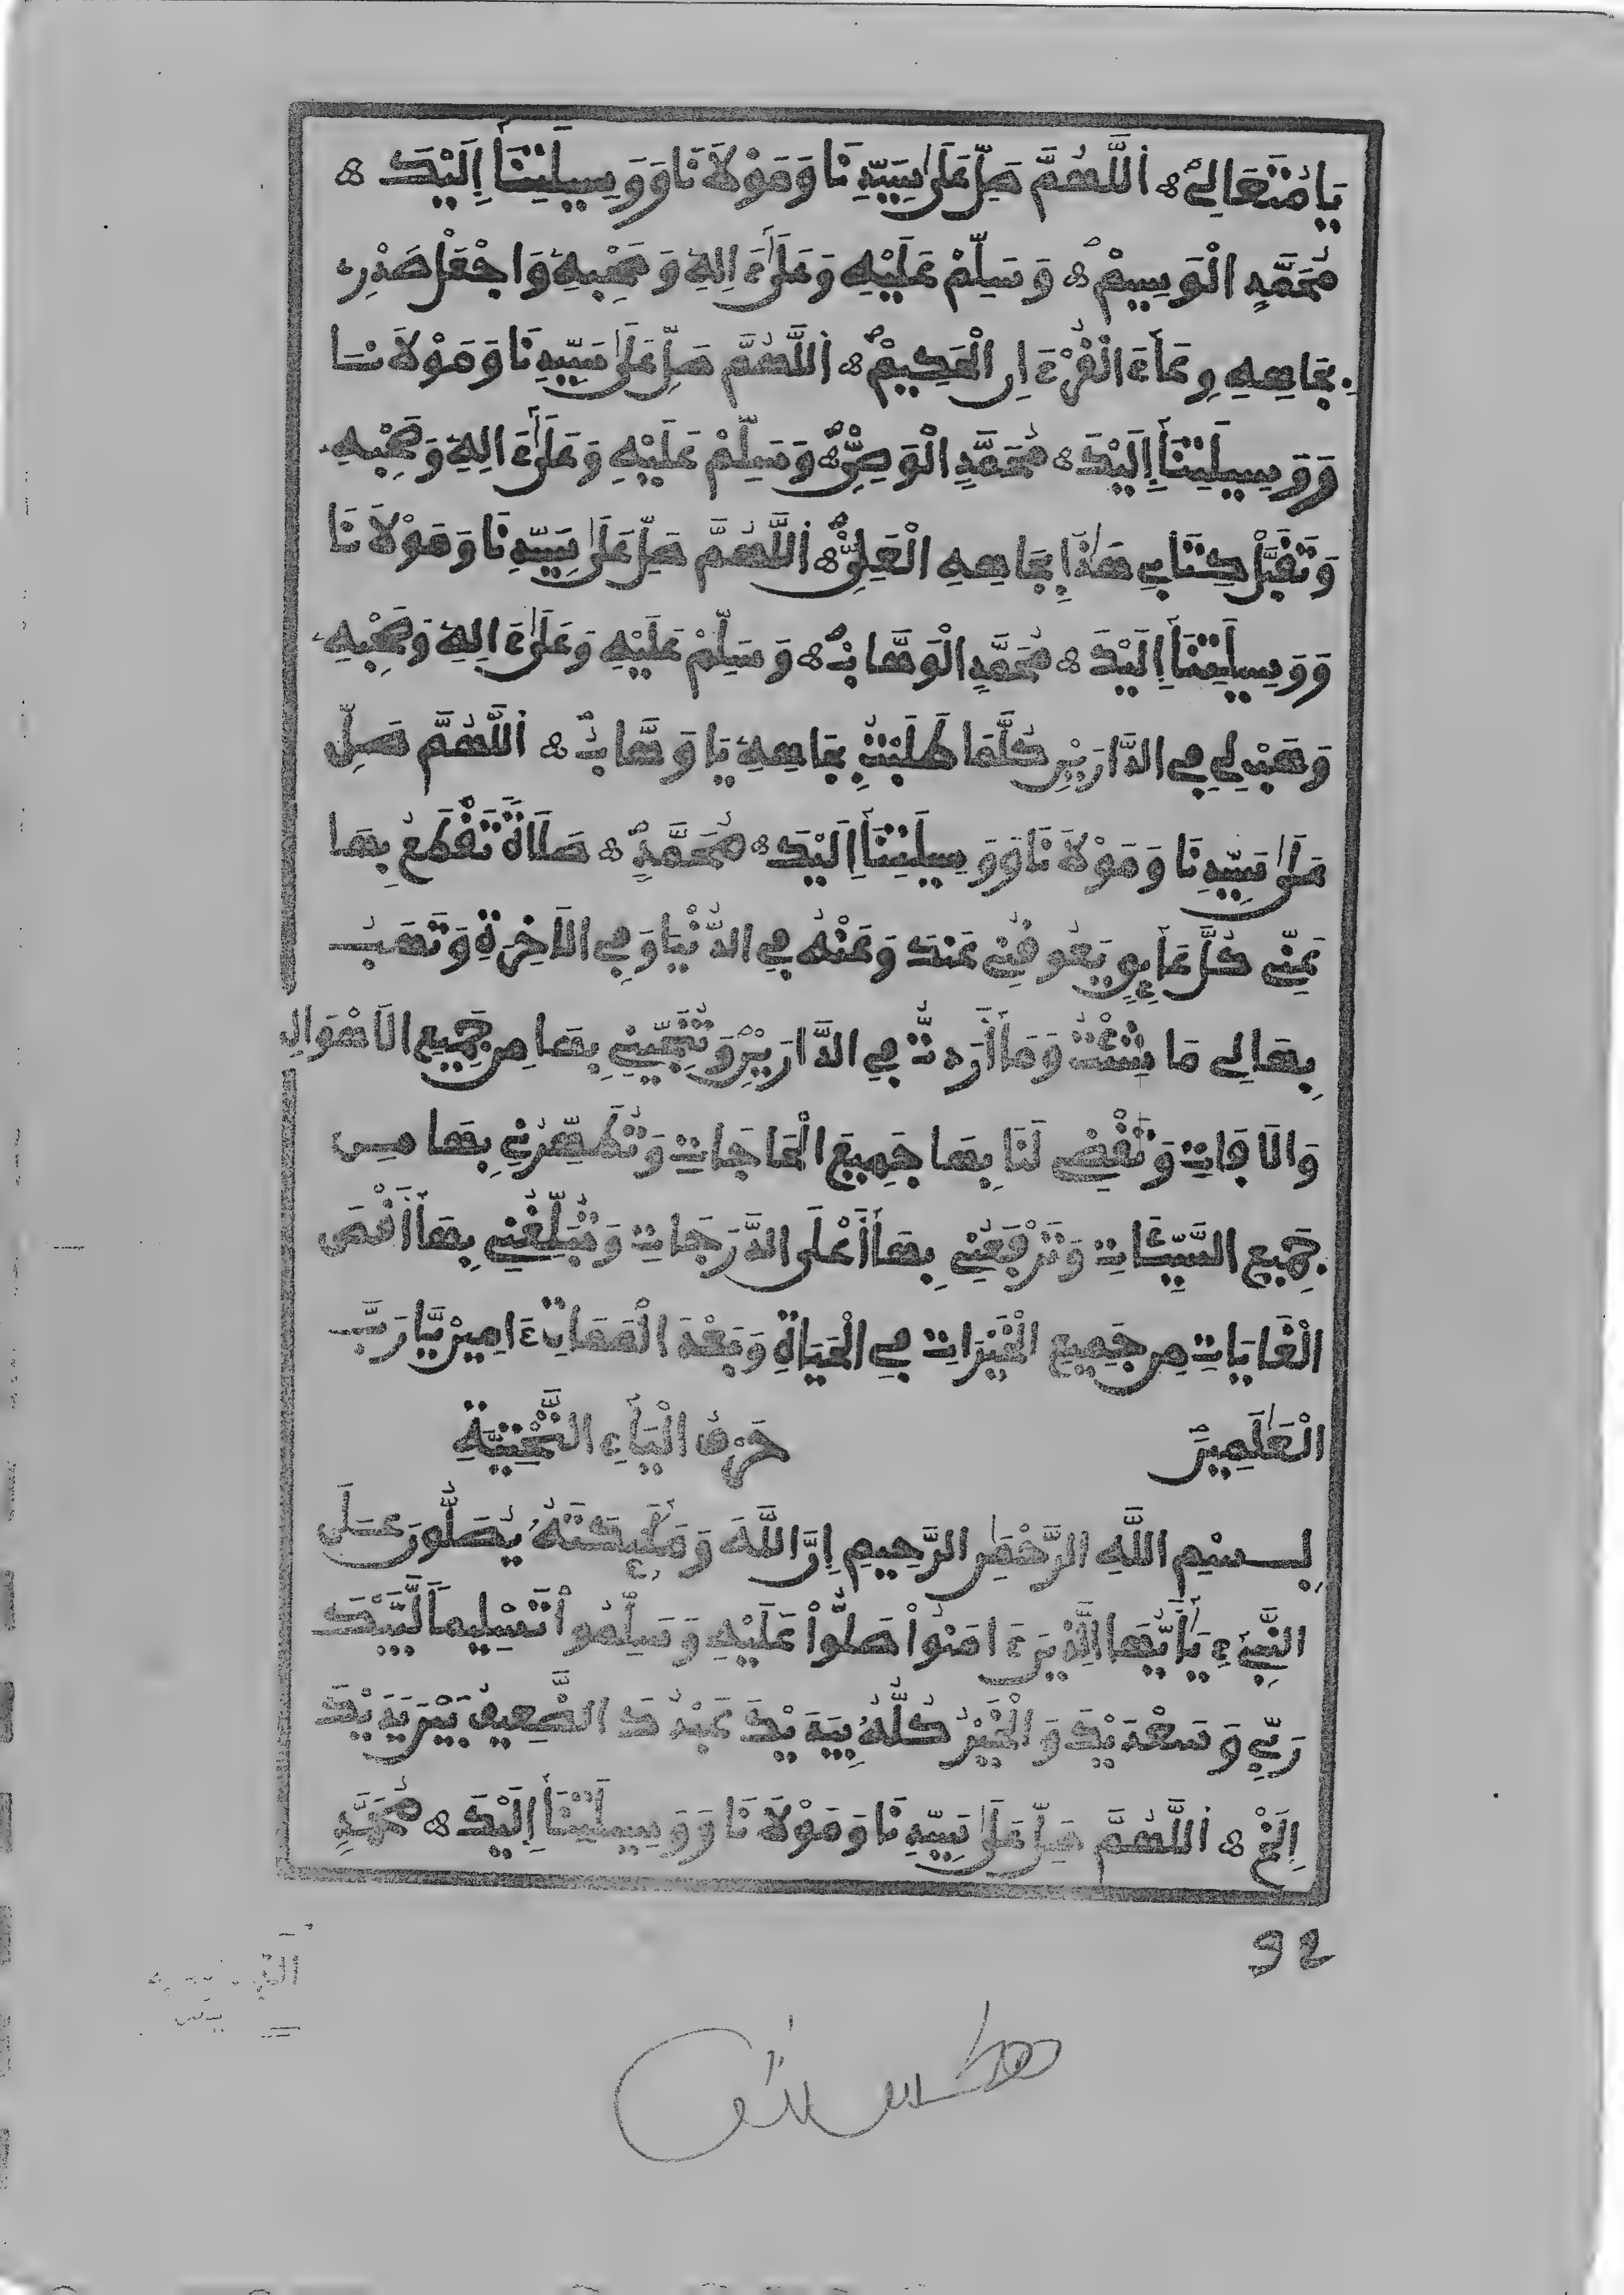 يَا مُتَعَالِي ۞ اللَّهُمَّ صَلِّ عَلَىٰ سَيِّدِنَا وَمَوْلَانَا وَوَسِيلَتِنَا إِلَيْكَ ۞
مُحَمَّدٍ الْوَسِيمْ ۞ وَسَلِّمْ عَلَيْهِ وَعَلَىٰ ءَالِهِ وَصَحْبِهِ وَاجْعَلْ صَدْرِ
بِجَاهِهِ وِعَاءَ الْقُرْءَانِ الْحَكِيمْ ۞ اللَّهُمَّ صَلِّ عَلَىٰ سَيِّدِنَا وَمَوْلَانَا
وَوَسِيلَتِنَا إِلَيْكَ ۞ مُحَمَّدٍ الْوَصِيّْ ۞ وَسَلِّمْ عَلَيْهِ وَعَلَىٰ ءَالِهِ وَصَحْبِهِ
وَتَقَبَّلْ كِتَابِي هَٰذَا بِجَاهِهِ الْعَلِيّْ ۞ اللَّهُمَّ صَلِّ عَلَىٰ سَيِّدِنَا وَمَوْلَانَا
وَوَسِيلَتِنَا إِلَيْكَ ۞ مُحَمَّدٍ الْوَهَّابْ ۞ وَسَلِّمْ عَلَيْهِ وَعَلَىٰ ءَالِهِ وَصَحْبِهِ
وَهَبْ لِي فِي الدَّارَيْنِ كُلَّمَا طَلَبْتُ بِجَاهِهِ يَا وَهَّابُ ۞ اللَّهُمَّ صَلِّ
عَلَىٰ سَيِّدِنَا وَمَوْلَانَا وَوَسِيلَتِنَا إِلَيْكَ ۞ مُحَمَّدٍ ۞ صَلَاةً تَقْطَعُ بِهَا
عَنِّي كُلَّ عَائِقٍ يَعُوقُنِي عَنْكَ وَعَنْهُ فِي الدُّنْيَا وَفِي الْآخِرَةِ وَتَهَبُ
بِهَا لِي مَا شِئْتُ وَمَا أَرَدتُّ فِي الدَّارَيْنِ وَتُنَجِّينِي بِهَا مِن جَمِيعِ الْأَهْوَالِ
وَالْآفَاتِ وَتَقْضِي لَنَا بِهَا جَمِيعَ الْحَاجَاتِ وَتُطَهِّرُنِي بِهَا مِن
جَمِيعِ السَّيِّئَاتِ وَتَرْفَعُنِي بِهَا أَعْلَى الدَّرَجَاتِ وَتُبَلِّغُنِي بِهَا أَقْصَى
الْغَايَاتِ مِن جَمِيعِ الْخَيْرَاتِ فِي الْحَيَاةِ وَبَعْدَ الْمَمَاتِ ءَامِينْ يَا رَبَّ
الْعَٰلَمِينَ حَرْفُ الْيَاءِ التَّحْتِيَّةِ
بِسْمِ اللَّهِ الرَّحْمَٰنِ الرَّحِيمِ إِنَّ اللَّهَ وَمَلَٰئِكَتَهُ يُصَلُّونَ عَلَى
النَّبِيءِ يَٰأَيُّهَا الَّذِينَ ءَامَنُواْ صَلُّواْ عَلَيْهِ وَسَلِّمُواْ تَسْلِيماً لَّبَّيْكَ
رَبِّي وَسَعْدَيْكَ وَالْخَيْرُ كُلُّهُ بِيَدَيْكَ عَبْدُكَ الضَّعِيفُ بَيْنَ يَدَيْكَ
إِلَخْ ۞ اللَّهُمَّ صَلِّ عَلَىٰ سَيِّدِنَا وَمَوْلَانَا وَوَسِيلَتِنَا إِلَيْكَ ۞ مُحَمَّدٍ
92